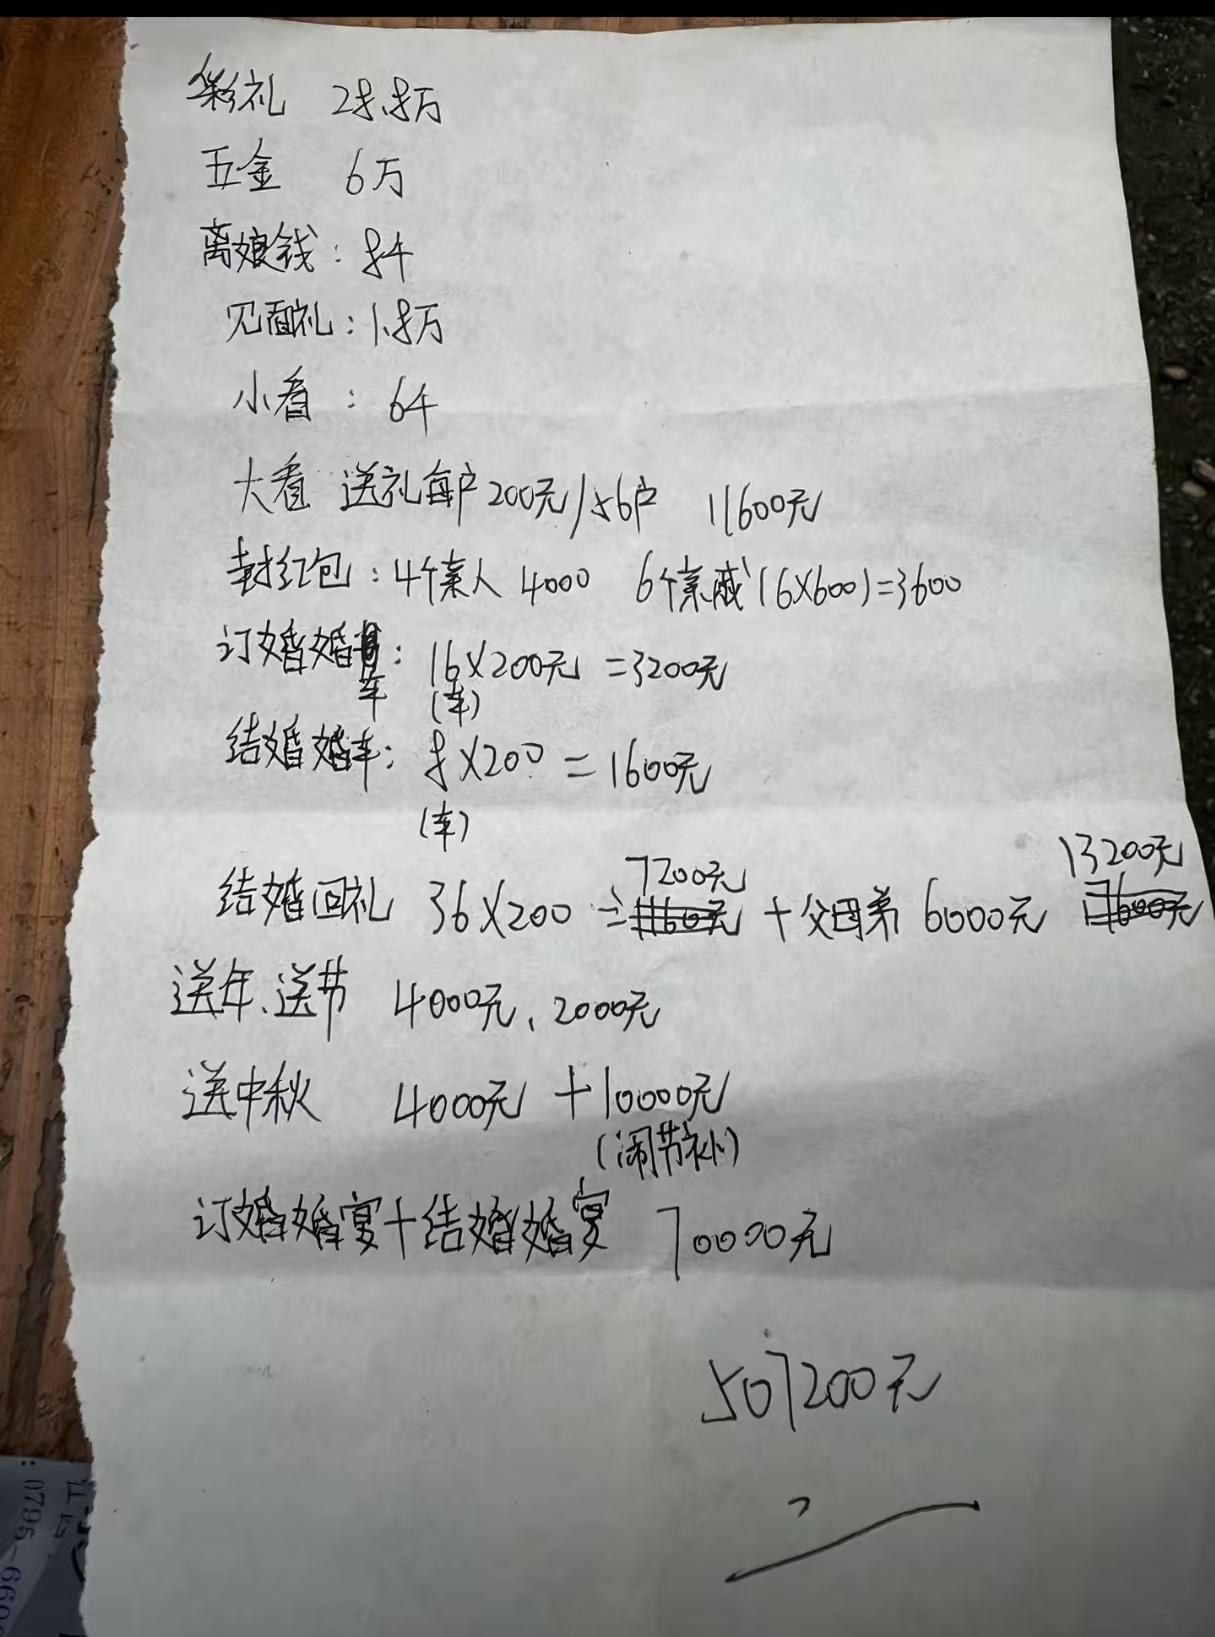 彩礼 28.8万
五金 6万
离娘钱：8千
见面礼：1.8万
小看：6千
大看 送礼每户200元/56户 11600元
封红包：4个亲人 4000 6个亲戚(6X600)=3600
订婚婚车：16X200元=3200元
(车)
结婚婚车：8X200=1600元
(车)
结婚回礼 36X200=7200元+父母弟6000元 13200元
送年、送节 4000元、2000元
送中秋 4000元+10000元
(闹节补)
订婚婚宴+结婚婚宴 70000元
507200元
：0795-660